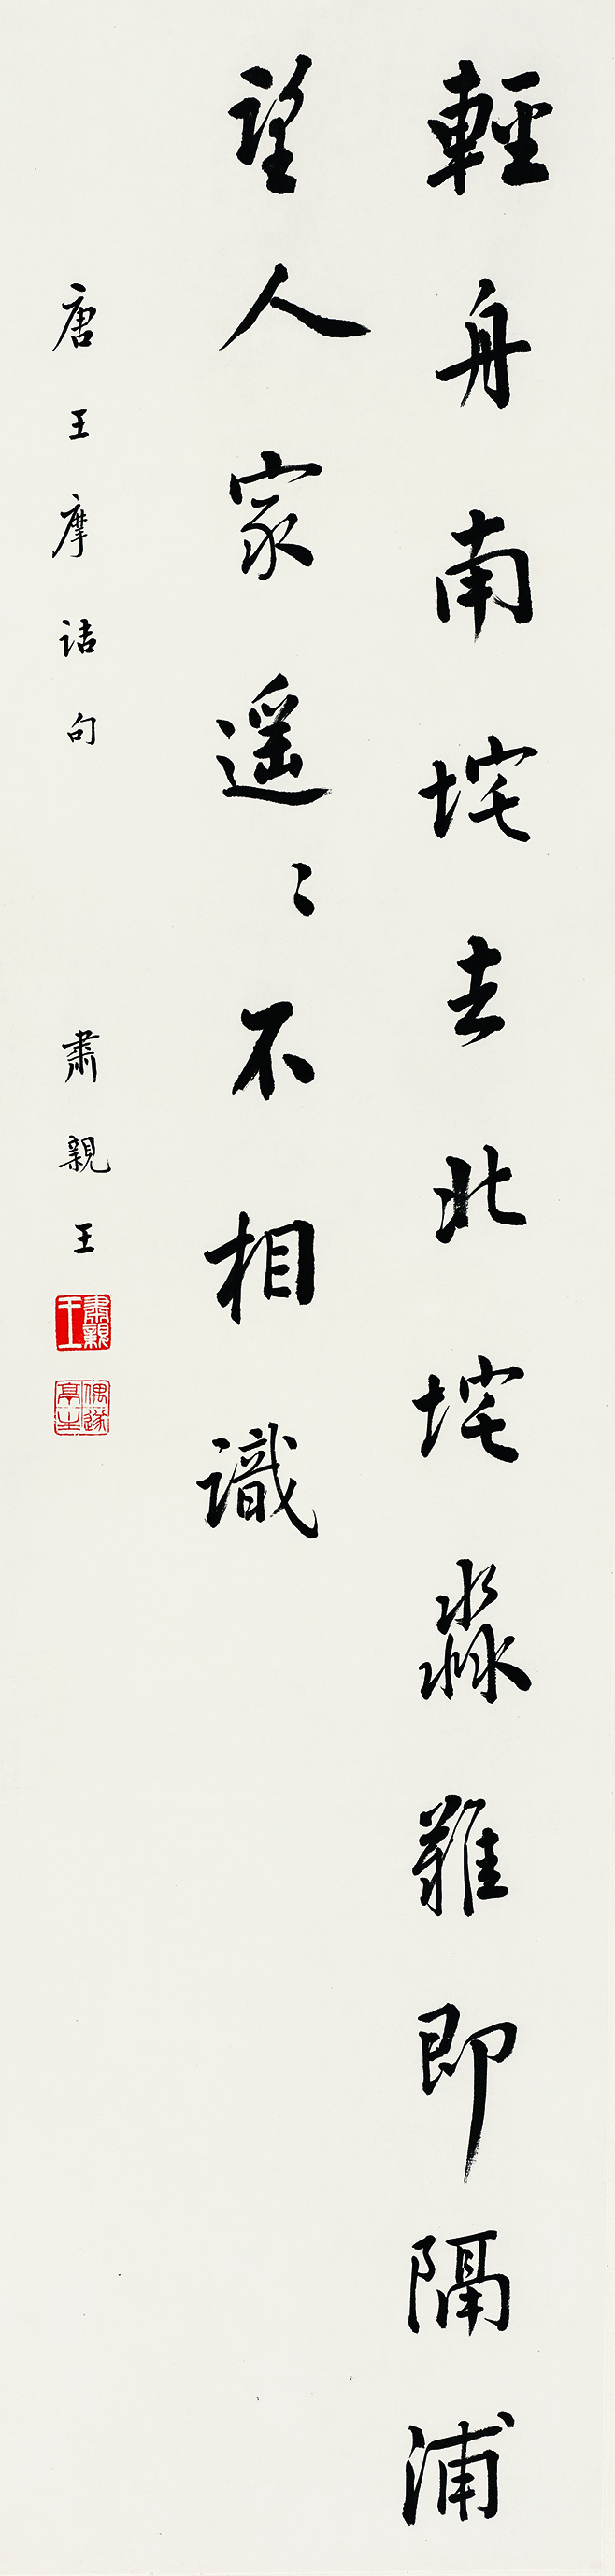 輕舟南垞去北垞淼難即隔浦
望人家遥〻不相識
唐王摩詰句
肅親王
肅親王
偶遂亭主